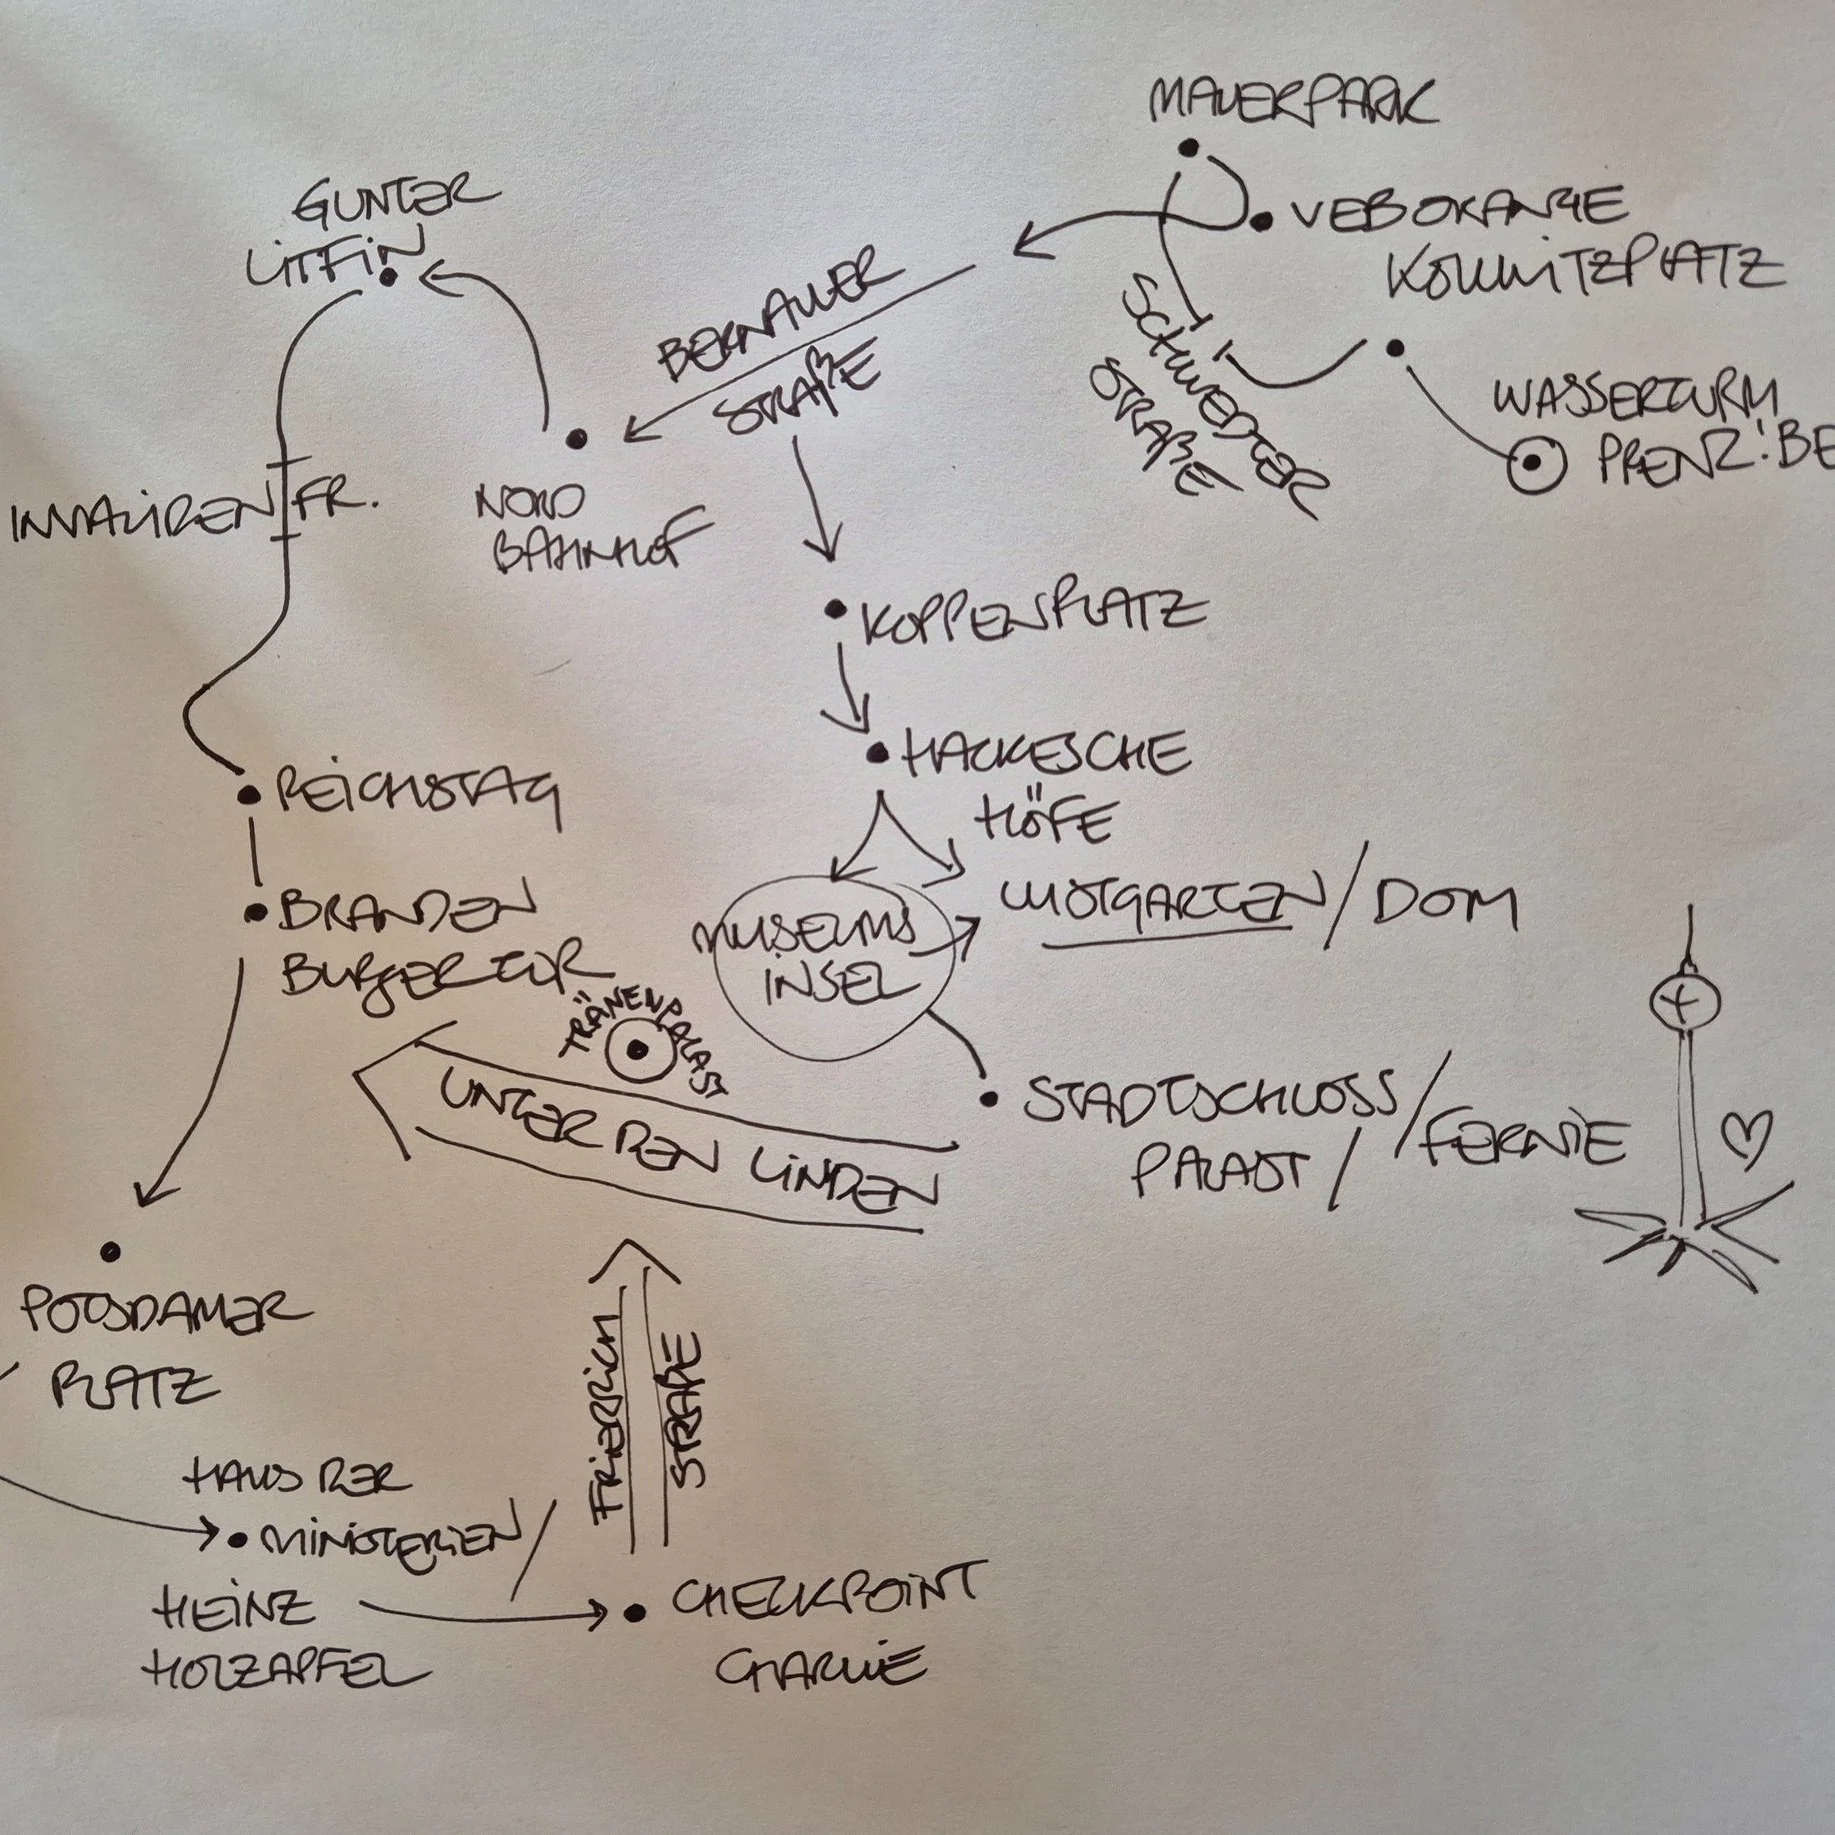 MAUERPARK
VEB ORANGE
KOLLWITZPLATZ
WASSERTURM
PRENZ'BE
SCHWEDTER
STRAßE
GUNTER
LITFIN
BERNAUER
STRAßE
INVALIDEN FR.
NORD
BAHNHOF
KOPPENPLATZ
HACKESCHE
HÖFE
REICHSTAG
BRANDEN
BURGER TOR
MUSEUMS
INSEL
LUSTGARTEN / DOM
TRÄNENPALAST
UNTER DEN LINDEN
STADTSCHLOSS /
PALAST / FERNIE
POTSDAMER
PLATZ
FRIEDRICH
STRAßE
HAUS DER
MINISTERIEN /
HEINZ
HOLZAPFEL
CHECKPOINT
CHARLIE